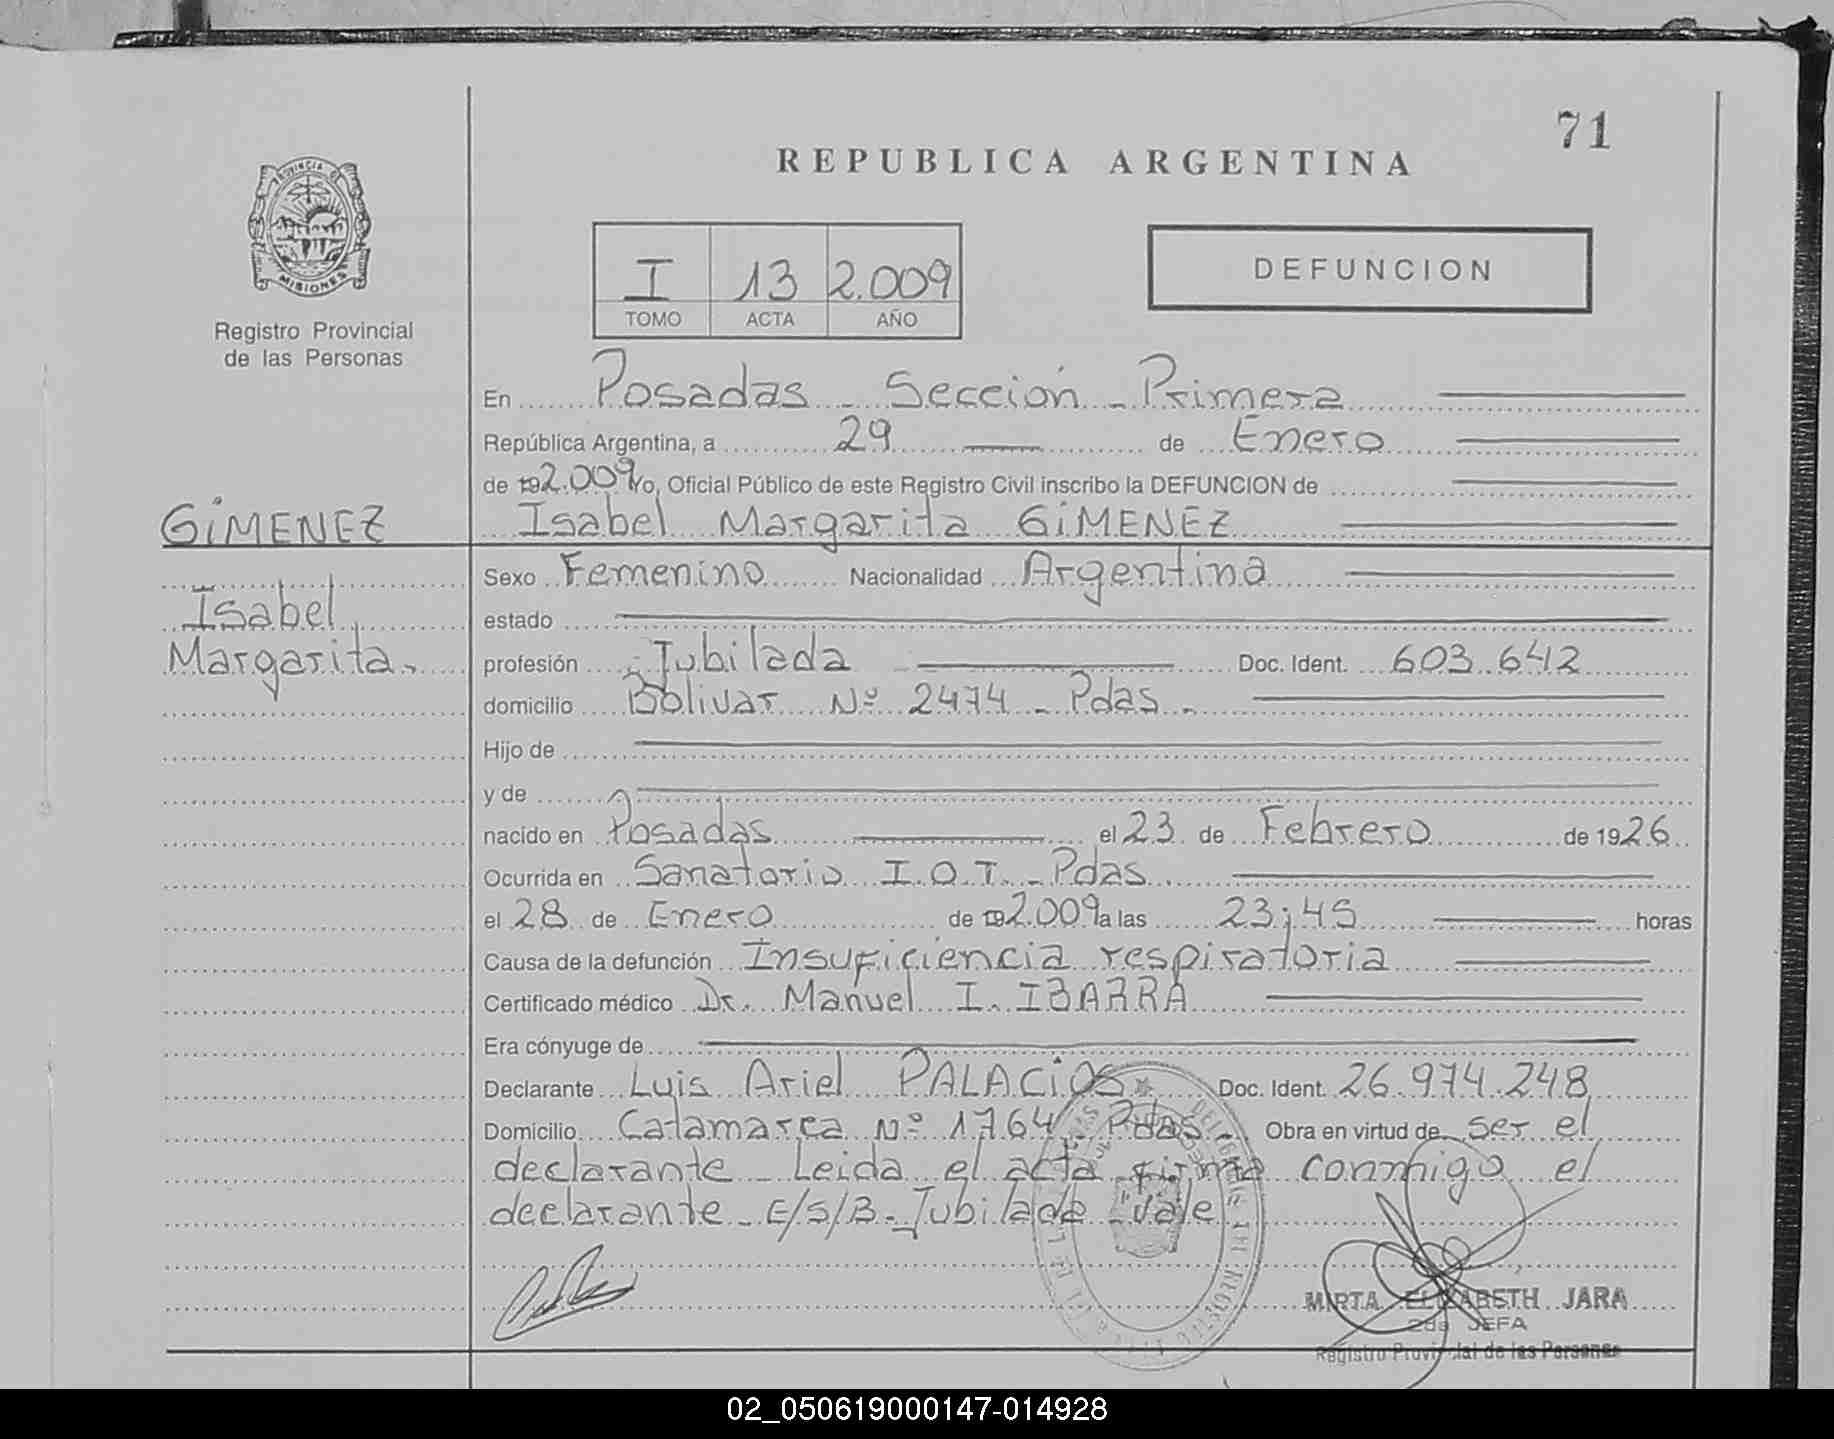 71
REPUBLICA ARGENTINA
PROVINCIA DE
MISIONES
Registro Provincial
de las Personas
I 13 2.009
TOMO ACTA AÑO
DEFUNCION
En Posadas - Sección - Primera
República Argentina, a 29 de Enero
de 19 2.009 yo, Oficial Público de este Registro Civil inscribo la DEFUNCION de
GiMENEZ
Isabel Margarita GiMENEZ
Isabel
Margarita.
Sexo Femenino Nacionalidad Argentina
estado
profesión Jubilada Doc. Ident. 603.642
domicilio Bolivar Nº 2474 - Pdas -
Hijo de
y de
nacido en Posadas el 23 de Febrero de 1926
Ocurrida en Sanatorio I.O.T. - Pdas
el 28 de Enero de 19 2.009 a las 23:45 horas
Causa de la defunción Insuficiencia respiratoria
Certificado médico Dr. Manuel I. IBARRA
Era cónyuge de
Declarante Luis Ariel PALACiOS Doc. Ident. 26.974.248
Domicilio Catamarca Nº 1764 - Pdas - Obra en virtud de ser el
declarante - Leida el acta firma conmigo el
declarante - E/S/B - Jubilada - Vale
MIRTA ELIZABETH JARA
2da JEFA
Registro Provincial de las Personas
02_050619000147-014928